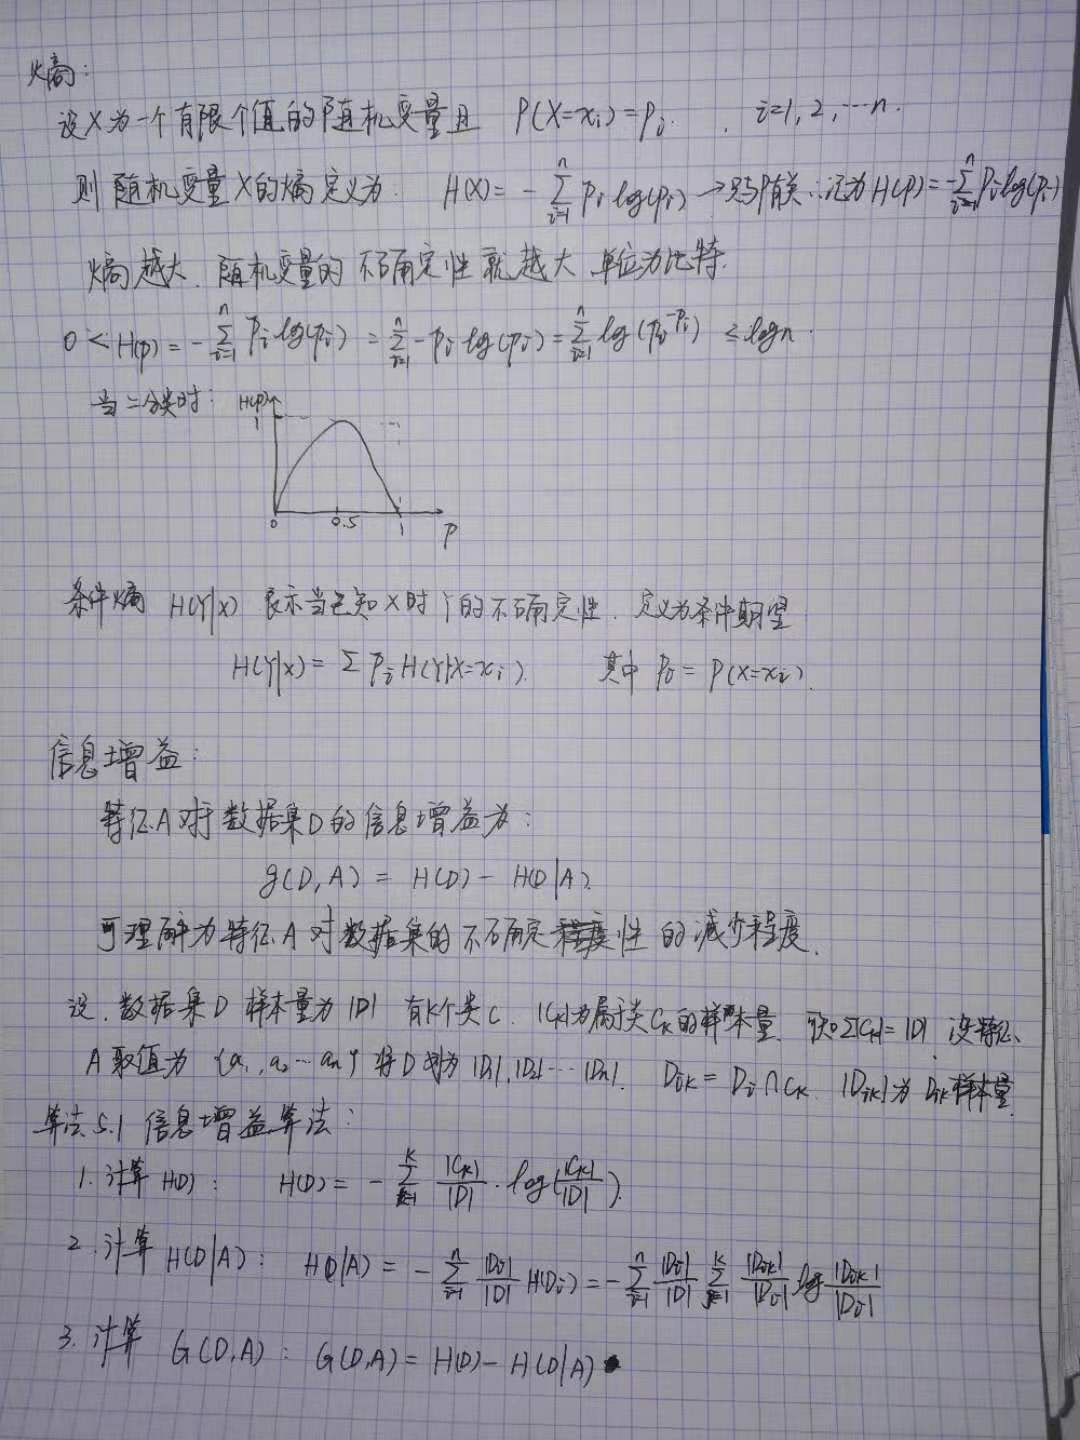 熵：
设X为一个有限个值的随机变量且 P(X=xi)=pi. i=1,2,…n.
则随机变量X的熵定义为. H(X)= -∑_{i=1}^{n} pi log(pi) →只与P有关 ∴记为H(p)=-∑_{i=1}^{n} pi log(pi)
熵越大. 随机变量的不确定性就越大 单位为比特.
0 < H(p) = -∑_{i=1}^{n} pi log(pi) = ∑_{i=1}^{n} -pi log(pi) = ∑_{i=1}^{n} log(pi^{-pi}) ≤ logn.
当二分类时:
H(p)
1
0 0.5 1 P
条件熵 H(Y|X) 表示当已知X时Y的不确定性. 定义为条件期望
H(Y|X) = ∑ Pi H(Y|X=xi). 其中 Pi = P(X=xi).
信息增益:
特征A对于数据集D的信息增益为:
g(D,A) = H(D) - H(D|A).
可理解为特征A对数据集的不确定性的减少程度.
设. 数据集D 样本量为|D| 有K个类C. |Ck|为属于类Ck的样本量. ∑|Ck|=|D|. 设特征
A取值为 {a1,a2…an} 将D划为|D1|,|D2|…|Dn|. Dik = Di∩Ck. |Dik|为Dik样本量
算法5.1 信息增益算法:
1. 计算H(D): H(D) = -∑_{k=1}^{K} |Ck|/|D| · log(|Ck|/|D|).
2. 计算H(D|A): H(D|A) = -∑_{i=1}^{n} |Di|/|D| H(Di) = -∑_{i=1}^{n} |Di|/|D| ∑_{k=1}^{K} |Dik|/|Di| log |Dik|/|Di|
3. 计算 G(D,A): G(D,A) = H(D) - H(D|A)